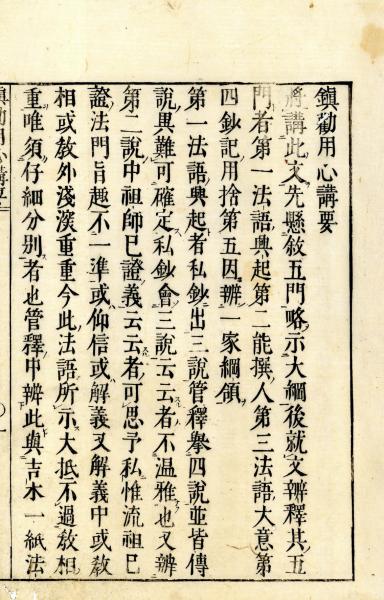 鎮勸用心講要
將講此文先懸敘五門略示大綱後就文辨釋其五
門者第一法語興起第二能撰人第三法語大意第
四鈔記用捨第五因辨一家綱領
第一法語興起者私鈔出三說管釋舉四說並皆傳
說異難可確定私鈔會三說云云者不温雅也又辨
第二說中祖師已證義云云者可思予私惟流祖已
證法門旨趣不一準或仰信或解義又解義中或敎
相或敎外淺深重重今此法語所示大抵不過敎相
重唯須仔細分別者也管釋中辨此與吉水一紙法
鎮勸用心講要